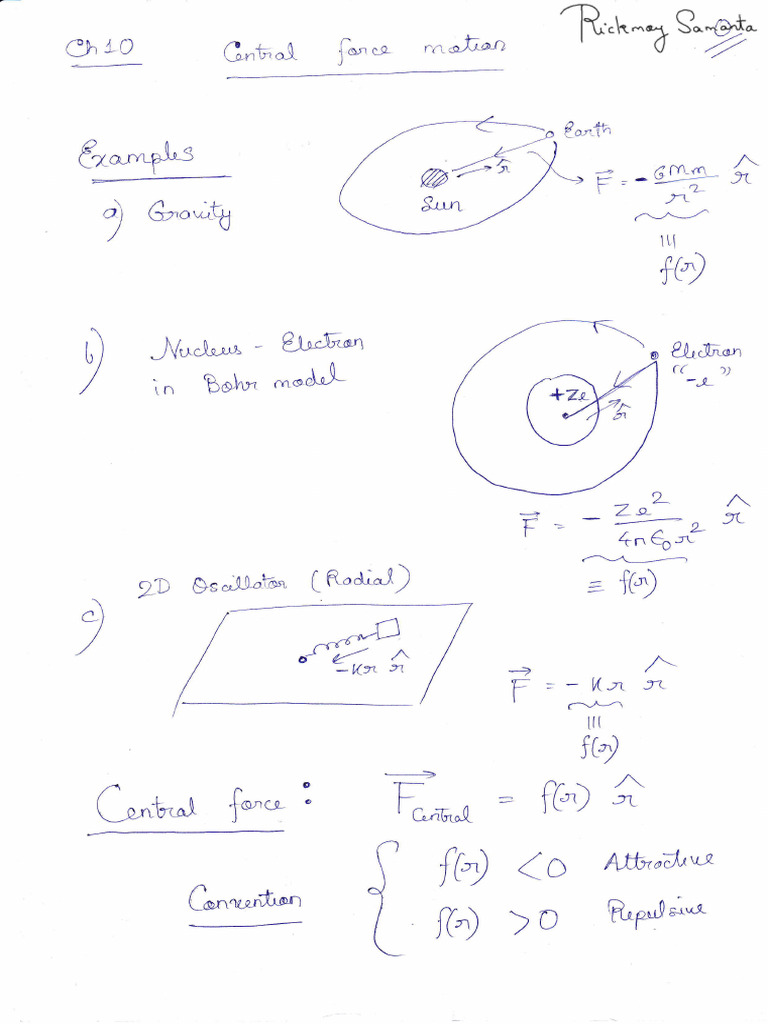 Rickmoy Samanta
Ch 10 Central force motion
Examples
a) Gravity
Earth
r̂
Sun
F⃗ = - GMm/r² r̂
≡
f(r)
b) Nucleus - Electron
in Bohr model
Electron
"-e"
+Ze
r̂
F⃗ = - Ze²/4πε₀r² r̂
≡ f(r)
c) 2D Oscillator (Radial)
-kr r̂
F⃗ = - kr r̂
≡
f(r)
Central force : F⃗Central = f(r) r̂
Convention { f(r) < 0 Attractive
f(r) > 0 Repulsive